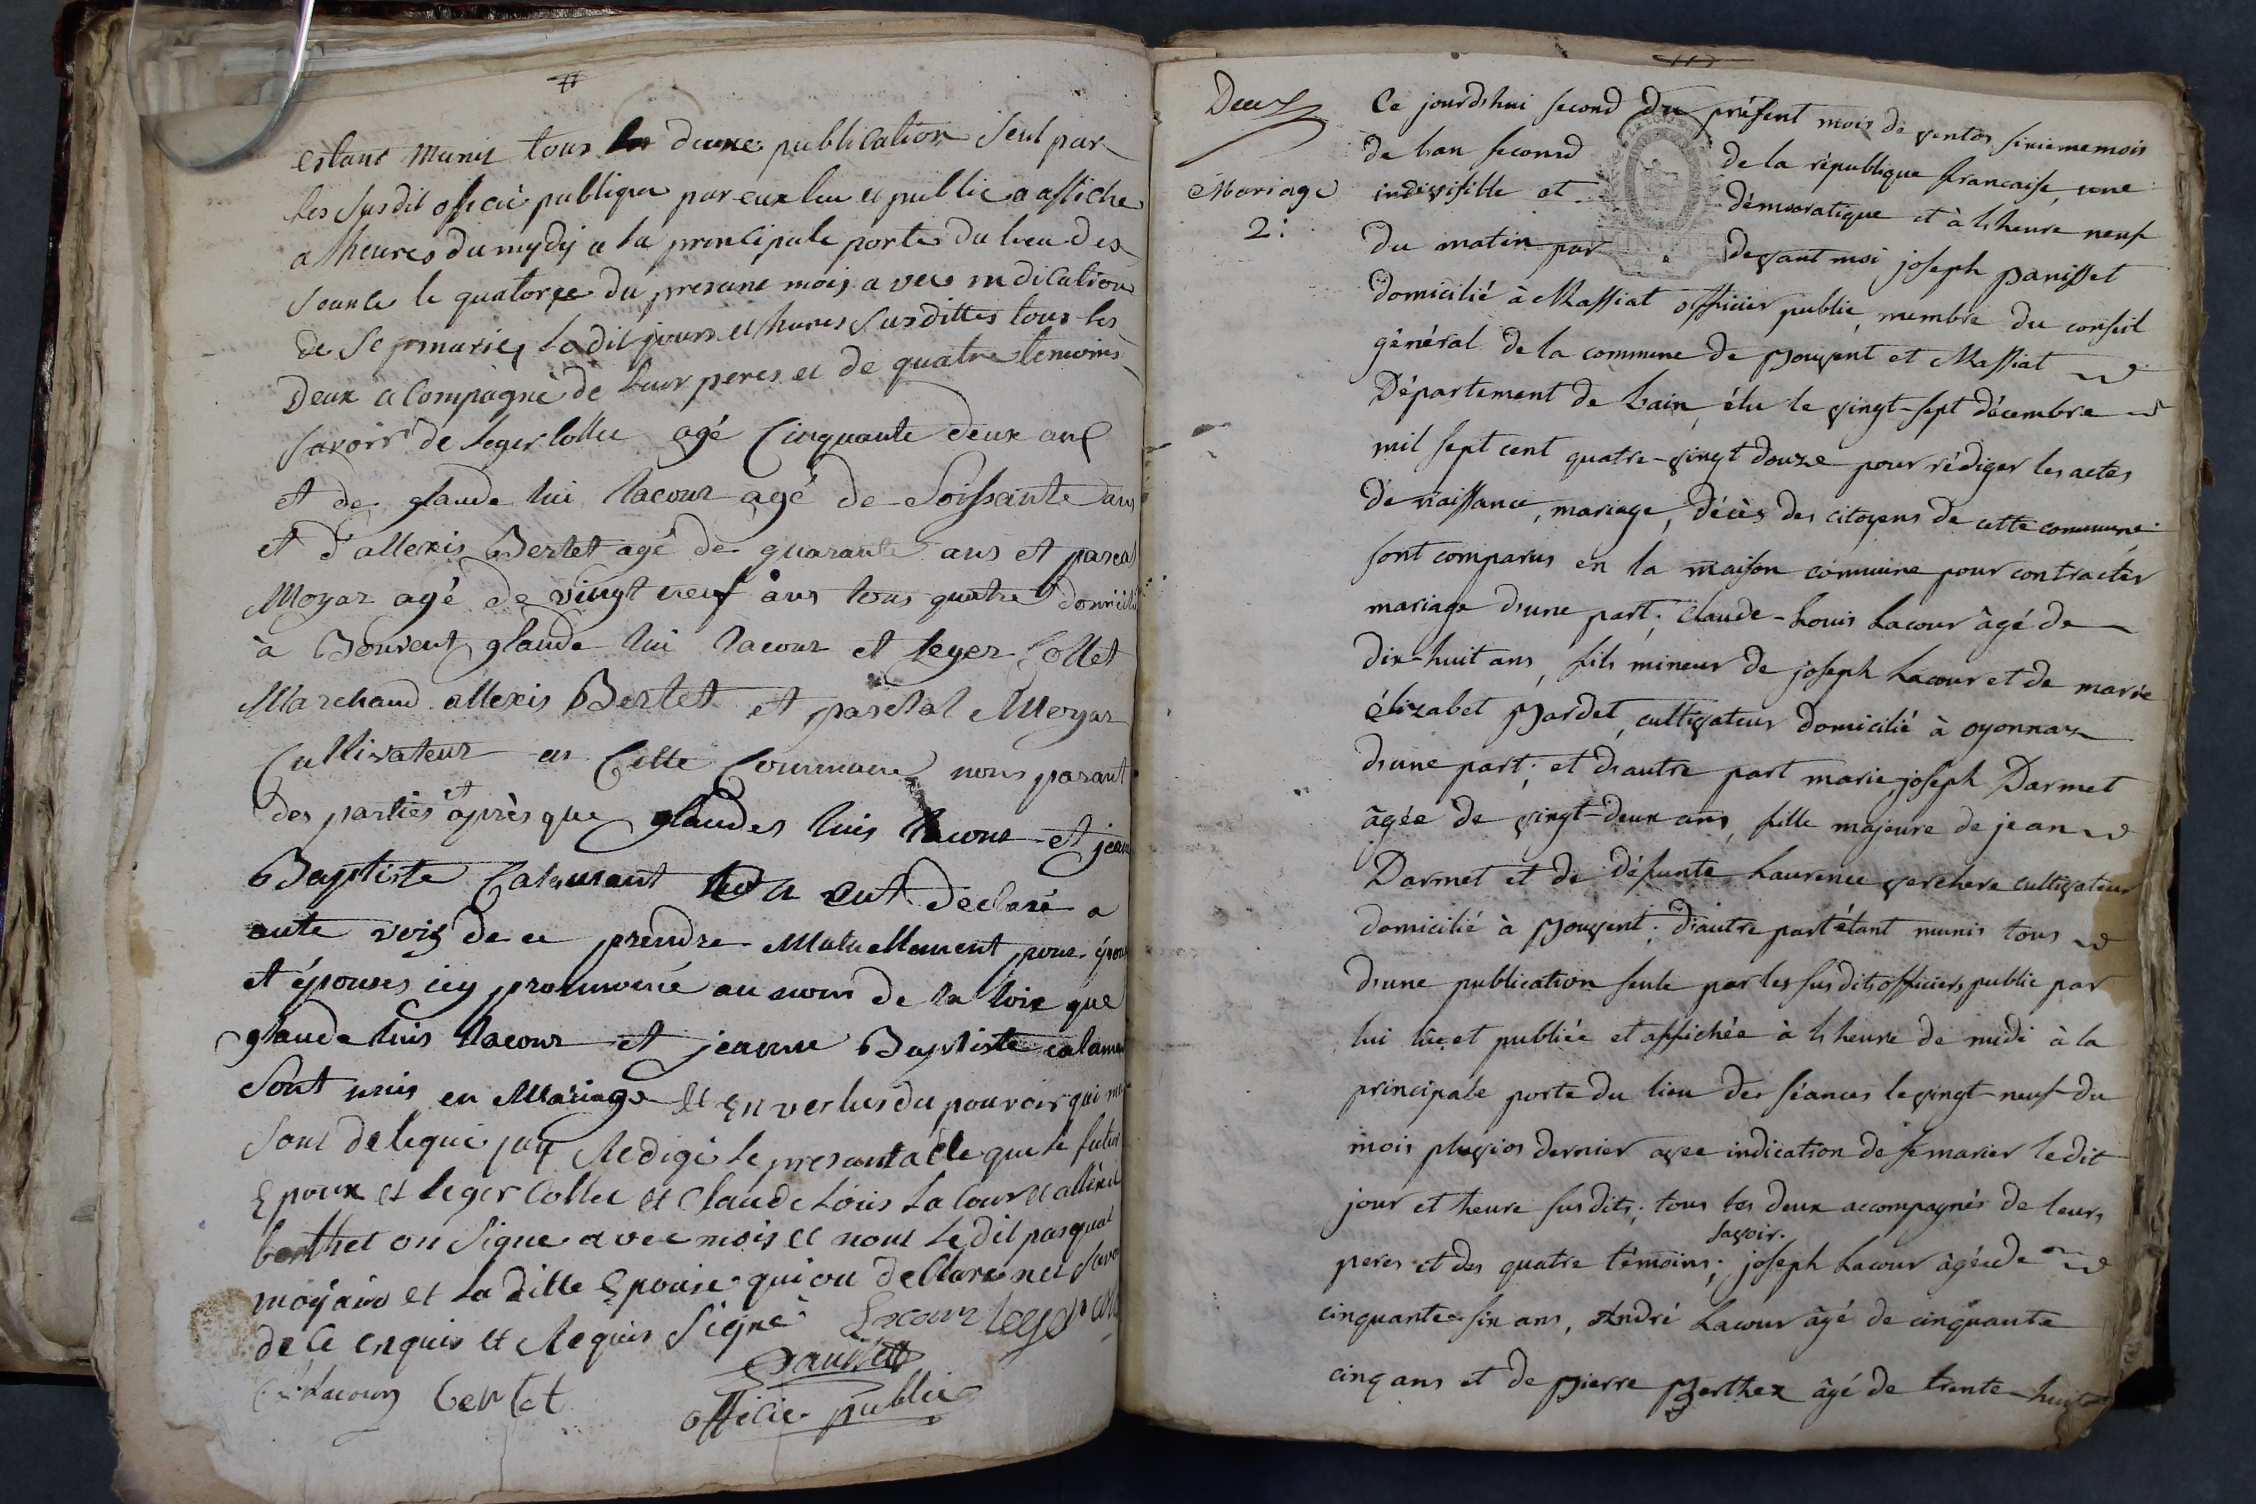 estant munis tous deune publication seul par
les susdit officié publique par eux lu et public a affiche
a lheures du mydy a la principale portes du lieu des
seance le quatorze du presant mois avec indication
de se marier le dit jours et hures susdittes tous les
deux acompagné de leur peres et de quatre temoins
savoir de leger Collet agé Cinquante deux ans
et de glaude lui lacour agé de Soissante ans
et d'allexis Bertet agé de quarante ans et pascal
Moyar agé de vingt neuf ans tous quatre domicilié
à Bouvent glaude lui lacour et leger Collet
Marchand allexis Bertet et paschal Moyar
Cultivateur en Cette Commune nous parant
des parties et après que glaudes luis lacour et jean
Baptiste Calamant ont declaré a
aute voix de ce prendre Mutuellement pour époux
et épouses jey prononcé au nom de la loix que
glaude luis lacour et jeanne Baptiste calamen
Sont unis en Mariage Et En vertus du pouvoir qui me
sont delequé jay Redigé le presant acte que le futur
Epoux et leger Collet et Claude Louis La Cour et allexi
berthet on signe avec mois et nont le dit pasqual
moyard et La ditte Epouse qui on declare ne savoir
de ce enquis et Requis Signé Lacour leger Col
Lacour Bertet
officié public
Deux
Mariage
2:
Ce jourd'hui second du présent mois de ventos sixieme mois
de l'an second de la république francaise, une
indivisible et démocratique et à l'heure neuf
du matin par devant moi joseph panisset
domicilié à Massiat officier public, membre du conseil
général de la commune de Bouvent et Massiat
Département de l'ain, élu le vingt-sept décembre
mil sept cent quatre-vingt douze pour rédiger les actes
de naissance, mariage, décès des citoyens de cette commune
sont comparus en la maison commune pour contracter
mariage d'une part; Claude-Louis Lacour âgé de
dix-huit ans, fils mineur de joseph Lacour et de marie
élizabet Bardet, cultivateur domicilié à oyonnax
d'une part; et d'autre part marie joseph Darmet
âgée de vingt-deux ans, fille majeure de jean
Darmet et de défunte Laurence verchere cultivateur
domicilié à Bouvent; d'autre part étant munis tous
d'une publication seule par les susdits officiers public par
lui lue et publiée et affichée à l'heure de midi à la
principale porte du lieu des séances le vingt-neuf du
mois pluvios dernier avec indication de se marier le dit
jour et heure susdits; tous les deux accompagnés de leurs
peres et des quatre témoins; savoir. joseph Lacour âgé de
cinquante-six ans, André Lacour âgé de cinquante
cinq ans et de Pierre Berthex âgé de trente-huit